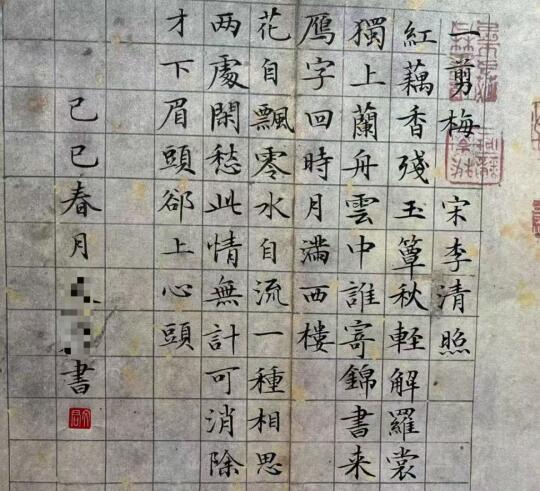 一剪梅 宋李清照
紅藕香殘玉簟秋輕解羅裳
獨上蘭舟雲中誰寄錦書来
鴈字回時月滿西樓
花自飄零水自流一種相思
两處閑愁此情無計可消除
才下眉頭郤上心頭
己巳春月 書